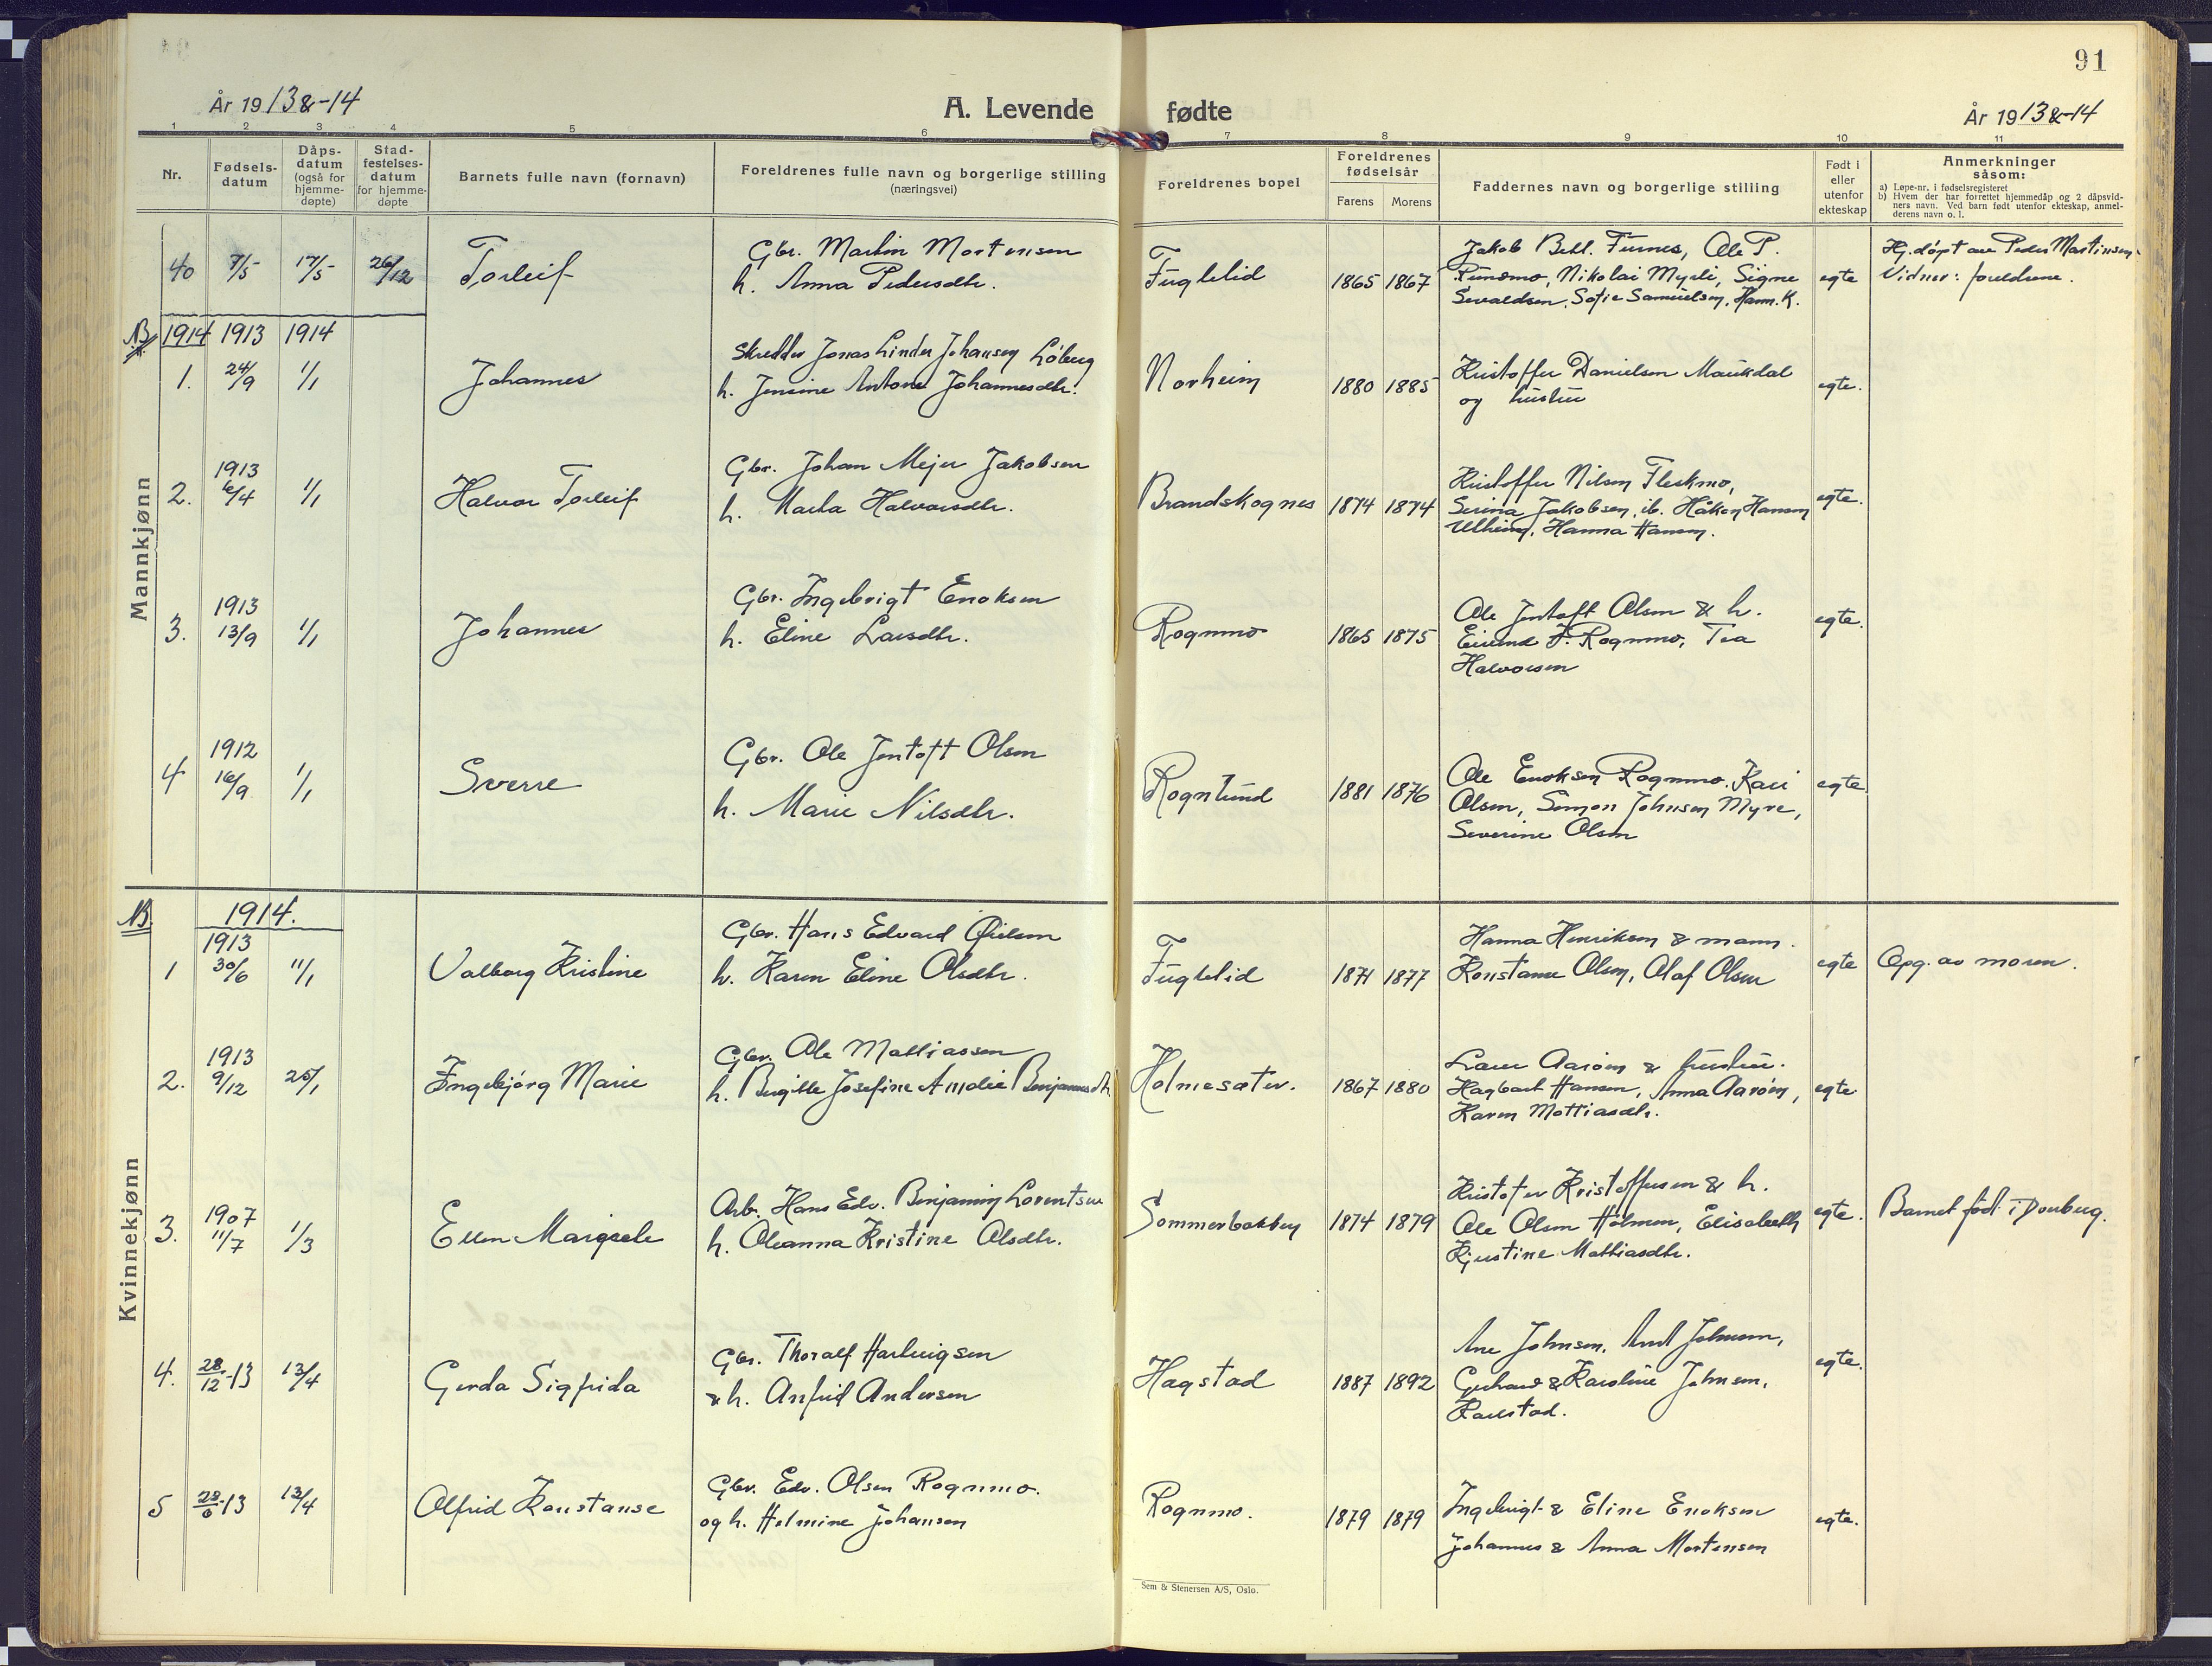 91
År 1913 & -14
A. Levende fødte
År 1913 & -14
1 2 3 4 5 6 7 8 9 10 11
Nr.
Fødsels-
datum
Dåps-
datum
(også for
hjemme-
døpte)
Stad-
festelses-
datum
for hjemme-
døpte
Barnets fulle navn (fornavn)
Foreldrenes fulle navn og borgerlige stilling
(næringsvei)
Foreldrenes bopel
Foreldrenes
fødselsår
Farens Morens
Faddernes navn og borgerlige stilling
Født i
eller
utenfor
ekteskap
Anmerkninger
såsom:
a) Løpe-nr. i fødselsregisteret
b) Hvem der har forrettet hjemmedåp og 2 dåpsvid-
ners navn. Ved barn født utenfor ekteskap, anmel-
derens navn o. l.
Mannkjønn
40 7/5 17/5 26/12 Torleif
Gbr. Martin Mortensen
h. Anna Pedersdtr.
Fuglelid 1865 1867
Jakob Betl. Furnes, Ole P.
Rundmo, Nikolai Myrli, Signe
Sevaldsen, Sofie Samuelsen, Hann. K.
egte
Hj.døpt av Peder Martinsen.
Vidner: foreldrene.
NB 1914 1913 1914
1. 24/9 1/1 Johannes
Skredder Jonas Linder Johansen Løberg
h. Jensine Antone Johannesdtr.
Norheim 1880 1885
Kristoffer Danielsen Maukdal
og hustru
egte.
1913
2. 6/4 1/1 Halvor Torleif
Gbr. Johan Mejer Jakobsen
h. Marta Halvorsdtr.
Brandskognes 1874 1874
Kristoffer Nilsen Fleskmo,
Serina Jakobsen, ib. Håkon Hansen
Ulheim, Hanna Hansen.
egte.
1913
3. 13/9 1/1 Johannes
Gbr. Ingebrigt Enoksen
h. Eline Larsdtr.
Rognmo 1865 1875
Ole Jentoft Olsen & h.
Eivind F. Rognmo, Tea
Halvorsen
egte.
1912
4 16/9 1/1 Sverre
Gbr. Ole Jentoft Olsen
h. Marie Nilsdtr.
Rognlund 1881 1876
Ole Enoksen Rognmo, Kari
Olsen, Simon Johnsen Myre,
Severine Olsen
egte.
Kvinnekjønn
NB. 1914.
1913
1 30/6 11/1 Valborg Kristine
Gbr. Hans Edvard Øielsen
h. Karen Eline Olsdtr.
Fuglelid 1871 1877
Hanna Henriksen & mann.
Konstanse Olsen, Olaf Olsen
egte
Opg. av moren.
1913
2. 9/12 25/1 Ingebjørg Marie
Gbr. Ole Mattiassen
h. Birgitte Josefine Amalie Benjaminsdtr
Holmesæter. 1867 1880
Laur Aarøen & hustru.
Hagbart Hansen, Anna Aarøen,
Karen Mattiasdtr.
egte
1907
3. 11/7 1/3 Ellen Margrete
Arb. Hans Edv. Benjamin Lorentsen
h. Oleanna Kristine Olsdtr.
Sommerbakken 1874 1879
Kristofer Kristoffersen & h.
Ole Olsen Holmen, Elisabeth
Kjerstine Mattiasdtr.
egte.
Barnet født i Dverberg.
4. 28/12-13 13/4 Gerda Sigfrida
Gbr. Thoralf Hartvigsen
& h. Anfrid Andersen
Hagstad 1887 1892
Ane Johnsen, Arnt Johnsen,
Gerhard & Karoline Johnsen,
Karlstad.
egte.
5 28/6-13 13/4 Olfrid Konstanse
Gbr. Edv. Olsen Rognmo.
og h. Helmine Johansen
Rognmo. 1879 1879
Ingebrigt & Eline Enoksen
Johannes & Anna Mortensen
egte.
Sem & Stenersen A/S, Oslo.